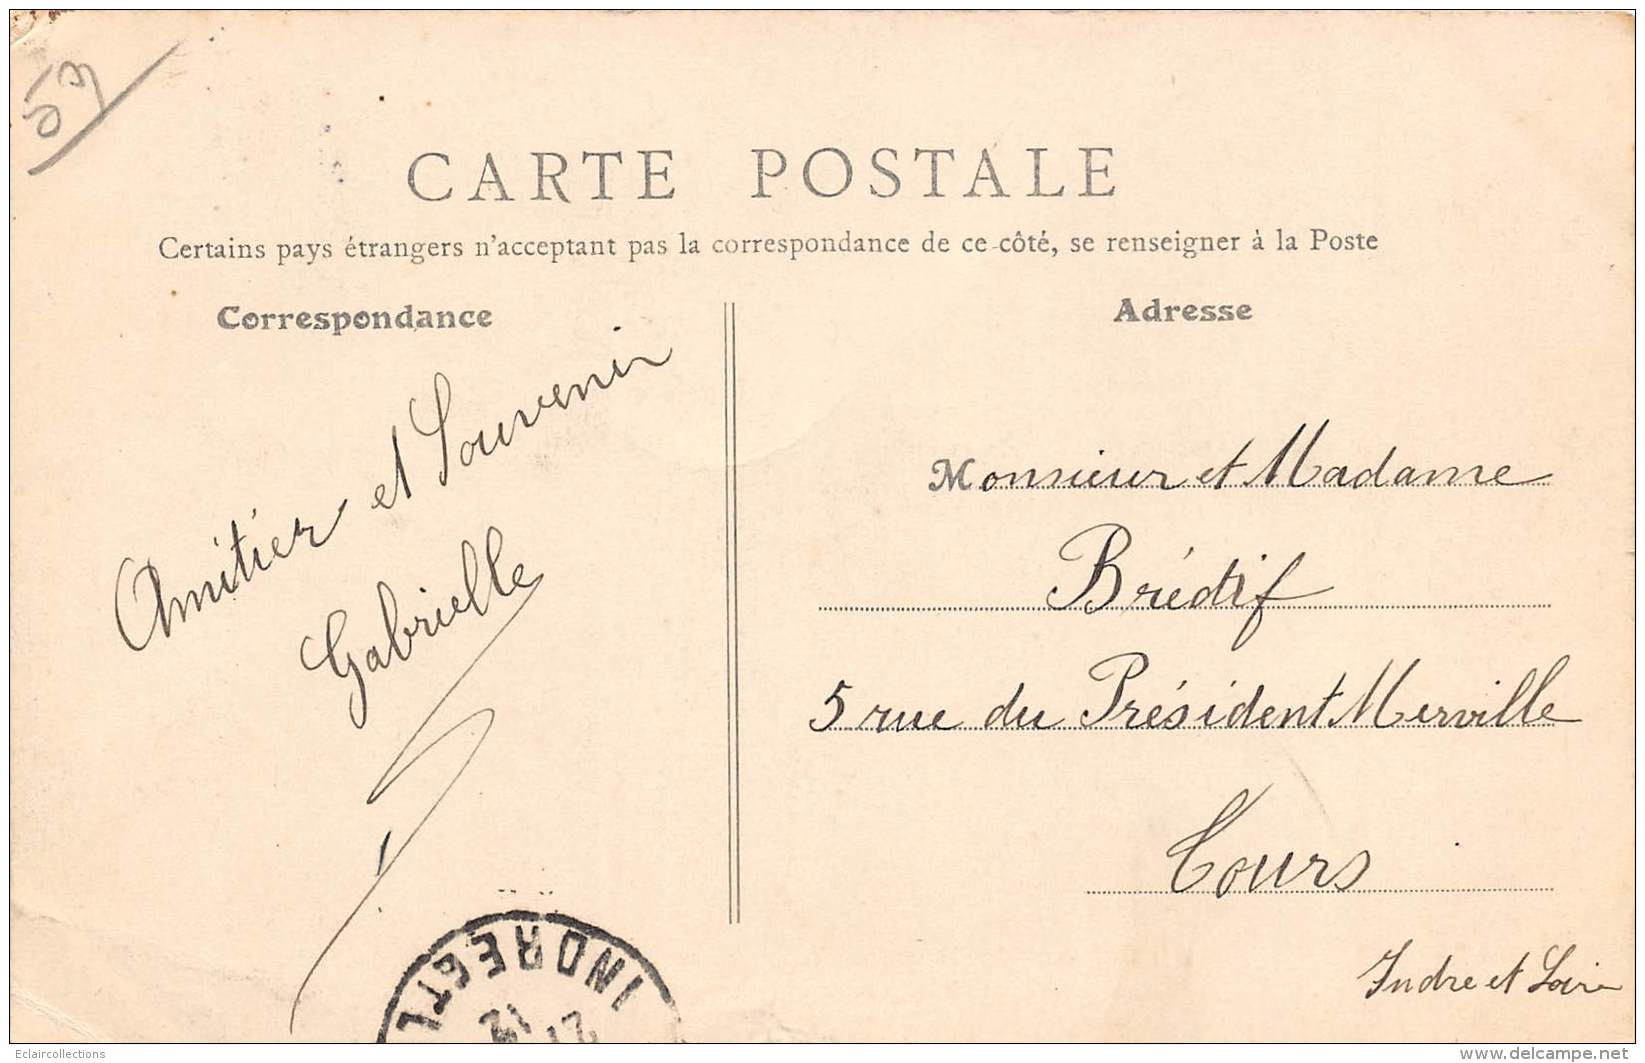 59
CARTE POSTALE
Certains pays étrangers n'acceptant pas la correspondance de ce côté, se renseigner à la Poste
Correspondance
Adresse
Amitier et Souvenir
Gabrielle
Monsieur et Madame
Brédif
5 rue du Président Merville
Tours
Indre et Loire
INDRE ET L
Eclaircollections
delcampe.net